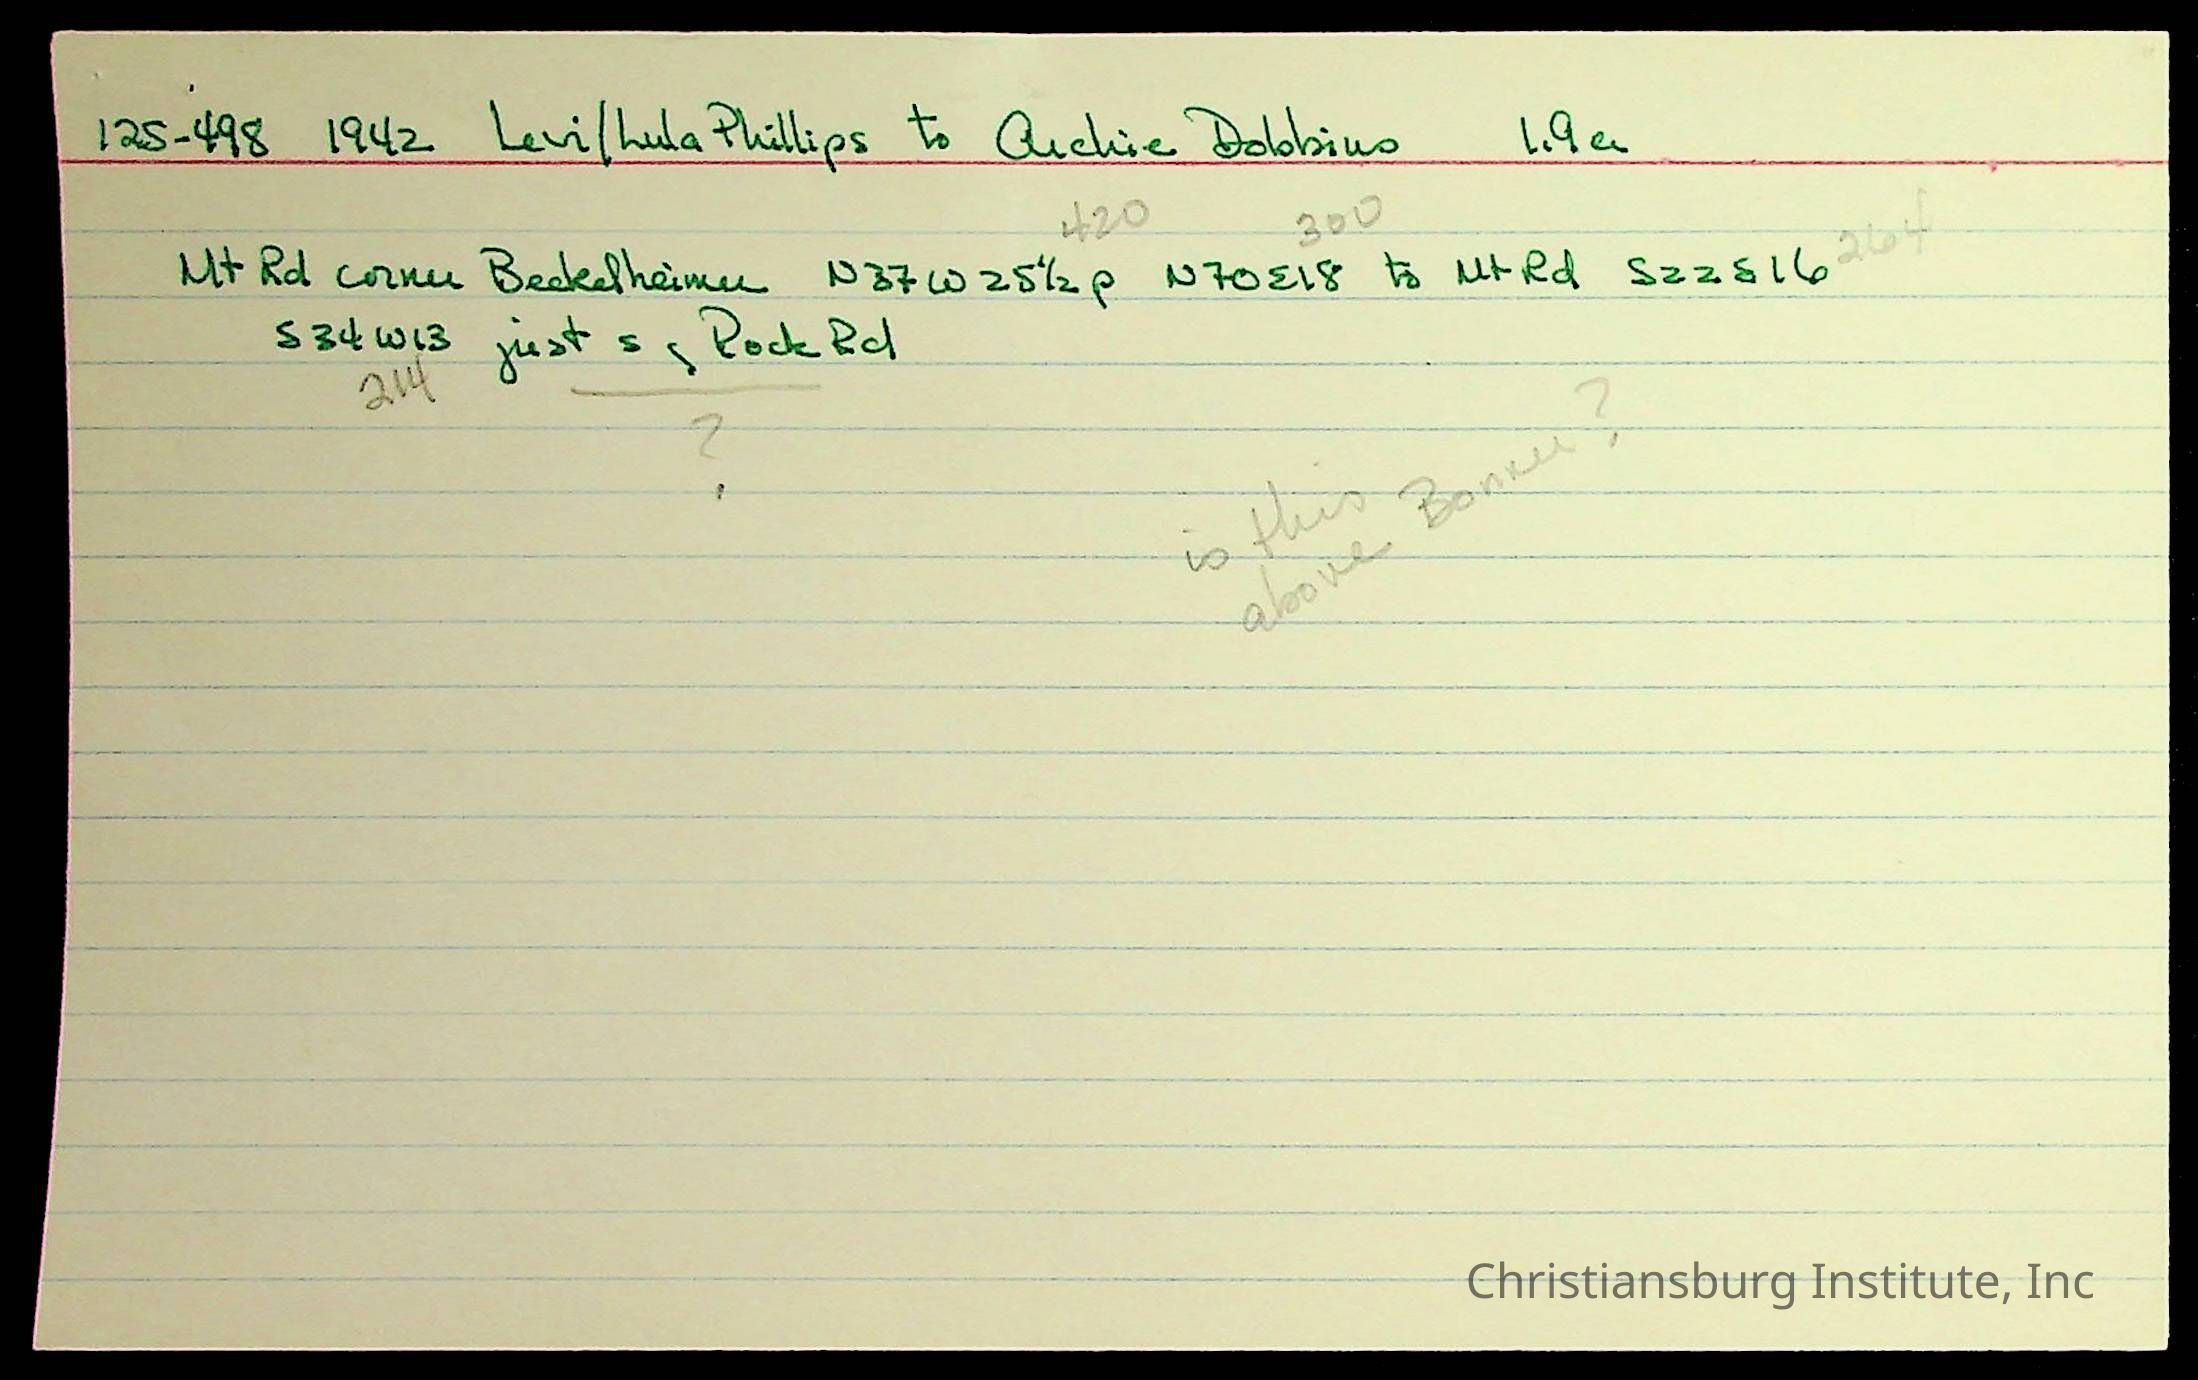 125-498 1942 Levi/Lula Phillips to Archie Dobbins 1.9a
420 300 264
Mt Rd corner Beckelheimer N37W25½p N70E18 to Mt Rd S22E16
S34W13 just s of Rock Rd
214
?
is this
above Bonner?
Christiansburg Institute, Inc